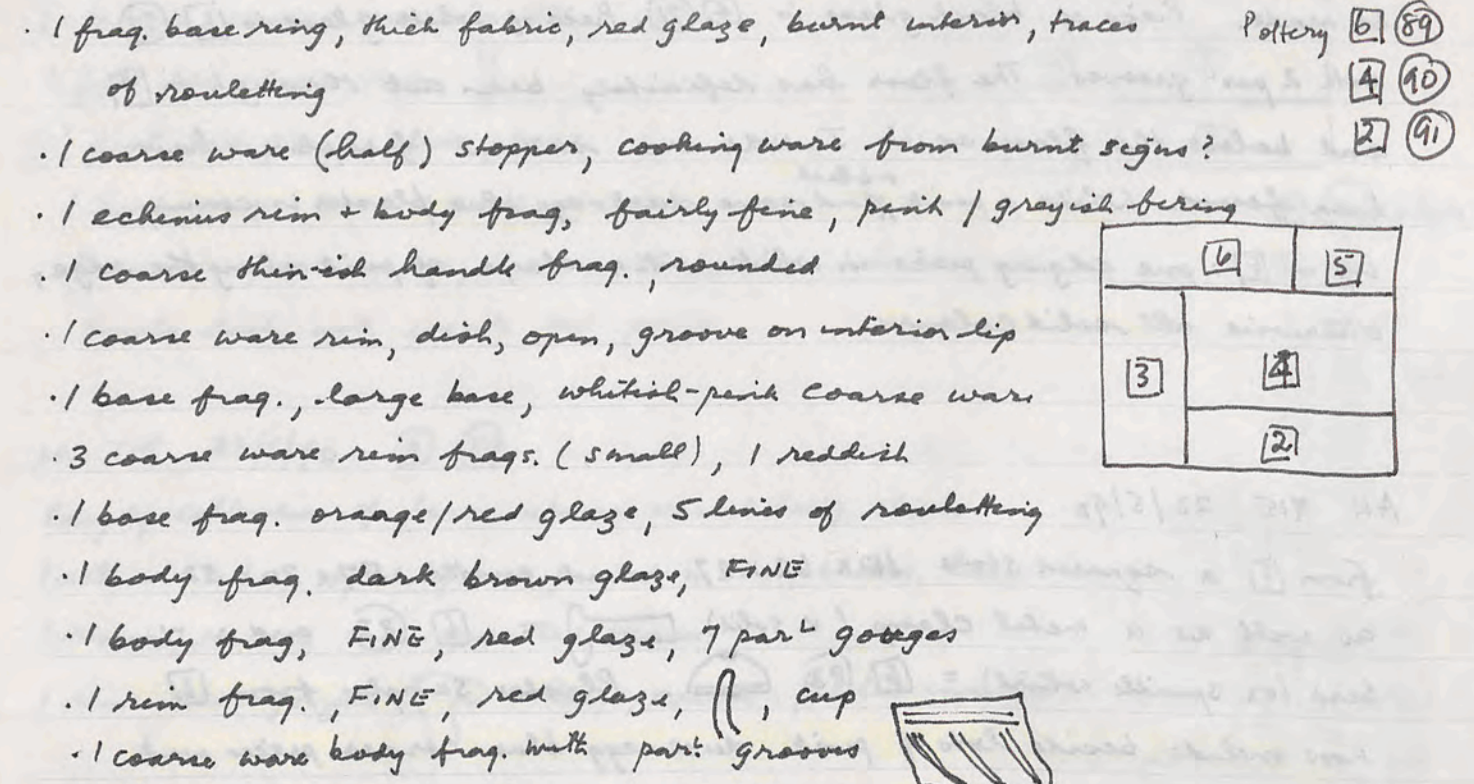 · 1 frag. base ring, thick fabric, red glaze, burnt interior, traces
of rouletting
Pottery 6 89
4 90
2 91
· 1 coarse ware (half) stopper, cooking ware from burnt signs?
· 1 echinus rim + body frag, fairly fine, pink / greyish firing
· 1 coarse thin-ish handle frag., rounded
· 1 coarse ware rim, dish, open, groove on interior lip
· 1 base frag., large base, whitish-pink coarse ware
· 3 coarse ware rim frags. (small), 1 reddish
· 1 base frag. orange/red glaze, 5 lines of rouletting
· 1 body frag. dark brown glaze, FINE
· 1 body frag, FINE, red glaze, 7 parl gouges
· 1 rim frag., FINE, red glaze, , cup
· 1 coarse ware body frag. with parl grooves
6 5
3 4
2